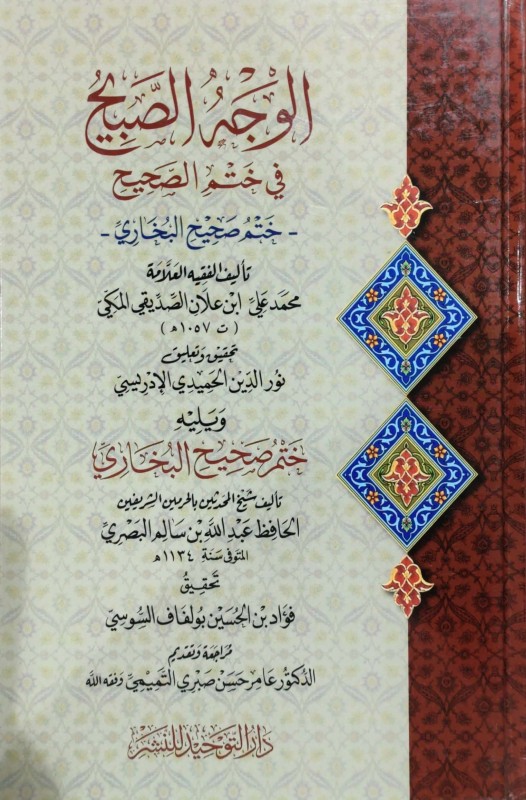 الوَجْهُ الصَّبِيحُ
فِي خَتْمِ الصَّحِيحِ
- خَتْمُ صَحِيْحِ البُخَارِيِّ -
تأليف الفقيه العلَّامة
محمد علي ابن علان الصديقي المكي
(ت ١٠٥٧ هـ)
تحقيق وتعليق
نور الدين الحميدي الإدريسي
وَيَلِيْهِ
خَتْمُ صَحِيْحِ البُخَارِيِّ
تأليف شيخ المحدثين بالحرمين الشريفين
الحافظ عبد الله بن سالم البصري
المتوفى سنة ١١٣٤ هـ
تحقيق
فؤاد بن الحسين بولفاف السوسي
مراجعة وتقديم
الدكتور عامر حسن صبري التميمي وفقه الله
دار التوحيد للنشر